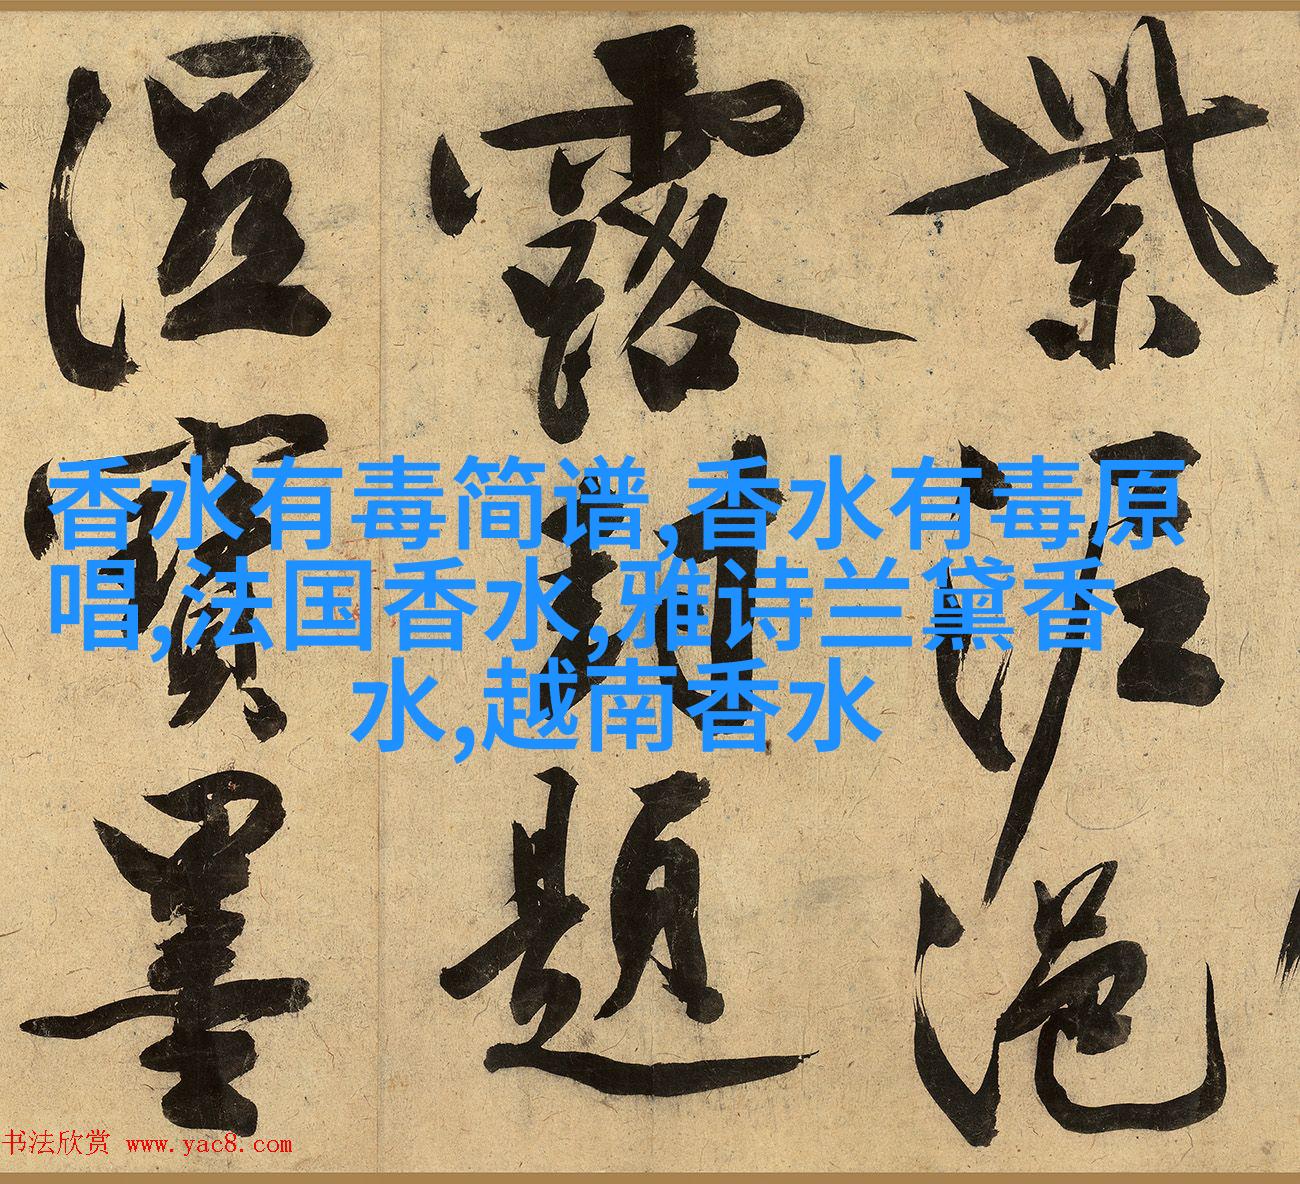 紫泥浥
露封題
濕寶墨
香水有毒简谱,香水有毒原
唱,法国香水,雅诗兰黛香
水,越南香水
书法欣赏 www.yac8.com